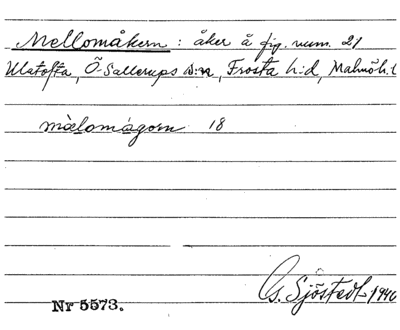 Mellomåkern : åker å fig. num. 21
Ulatofta, Ö. Sallerups s:n, Frosta h:d, Malmöh. l
mælomågorn 18
G. Sjöstedt 1946
Nr 5573.